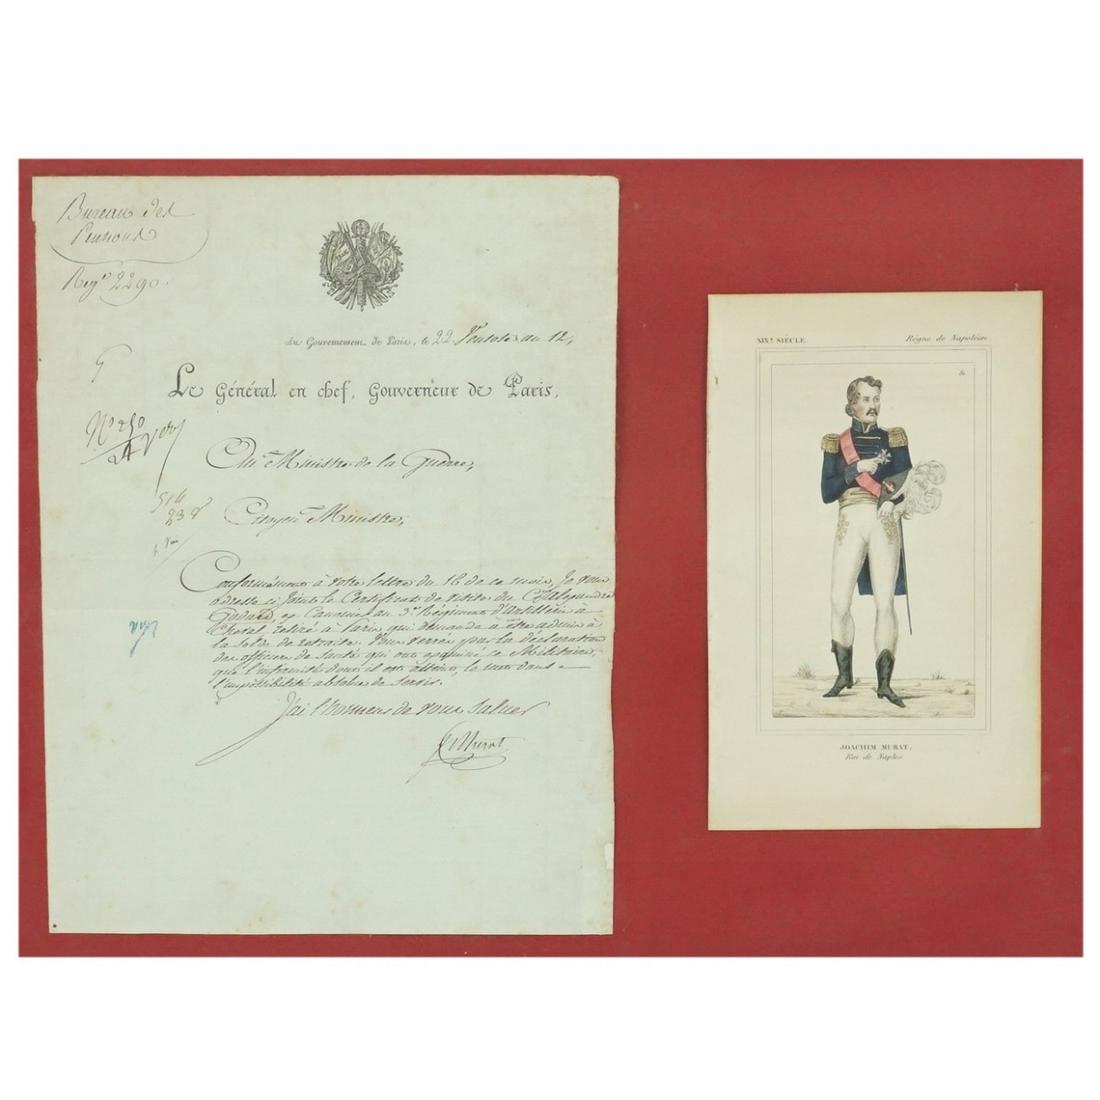 Bureau des
Pensions
Reg. 2290.
du Gouvernement de Paris, le 22 Ventôse an 12,
Le Général en chef, Gouverneur de Paris,
Au Ministre de la Guerre,
Citoyen Ministre,
Conformément à votre lettre du 16 de ce mois, Je vous
adresse ci Joint le Certificat de visite du Cen Alexandre
Godard, ex Canonier au 3e Régiment d'Artillerie à
Cheval retiré à Paris, qui demande à être admis à
la solde de retraite. Vous verrez par la déclaration
des officiers de santé qui ont examiné ce Militaire,
que l'infirmité dont il est atteint, le met dans
l'impossibilité absolue de servir.
J'ai l'honneur de vous Saluer
Murat
XIXe SIÈCLE.
Règne de Napoléon
JOACHIM MURAT,
Roi de Naples